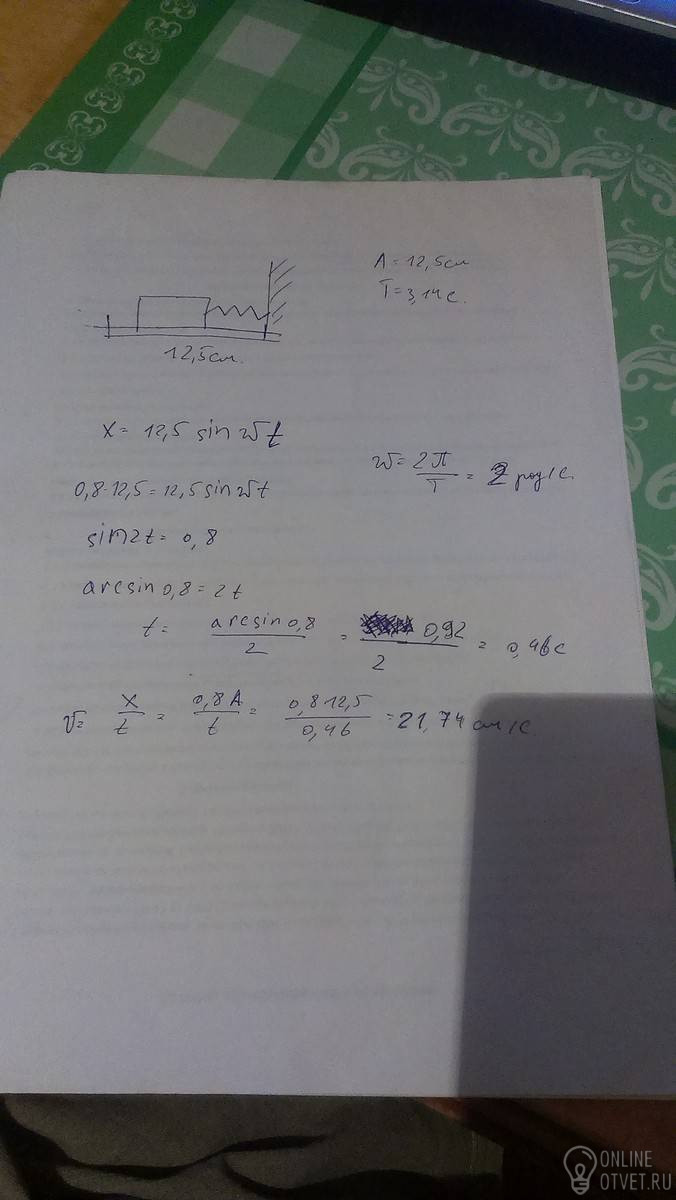 A = 12,5см
T = 3,14с.
12,5см.
x = 12,5 sin ωt
ω = 2π/T = 2 рад/с.
0,8·12,5 = 12,5 sin ωt
sin2t = 0,8
arcsin 0,8 = 2t
t = arcsin 0,8/2 = 0,92/2 = 0,46с
v = x/t = 0,8A/t = 0,8 12,5/0,46 = 21,74 см/с
ONLINE
OTVET.RU